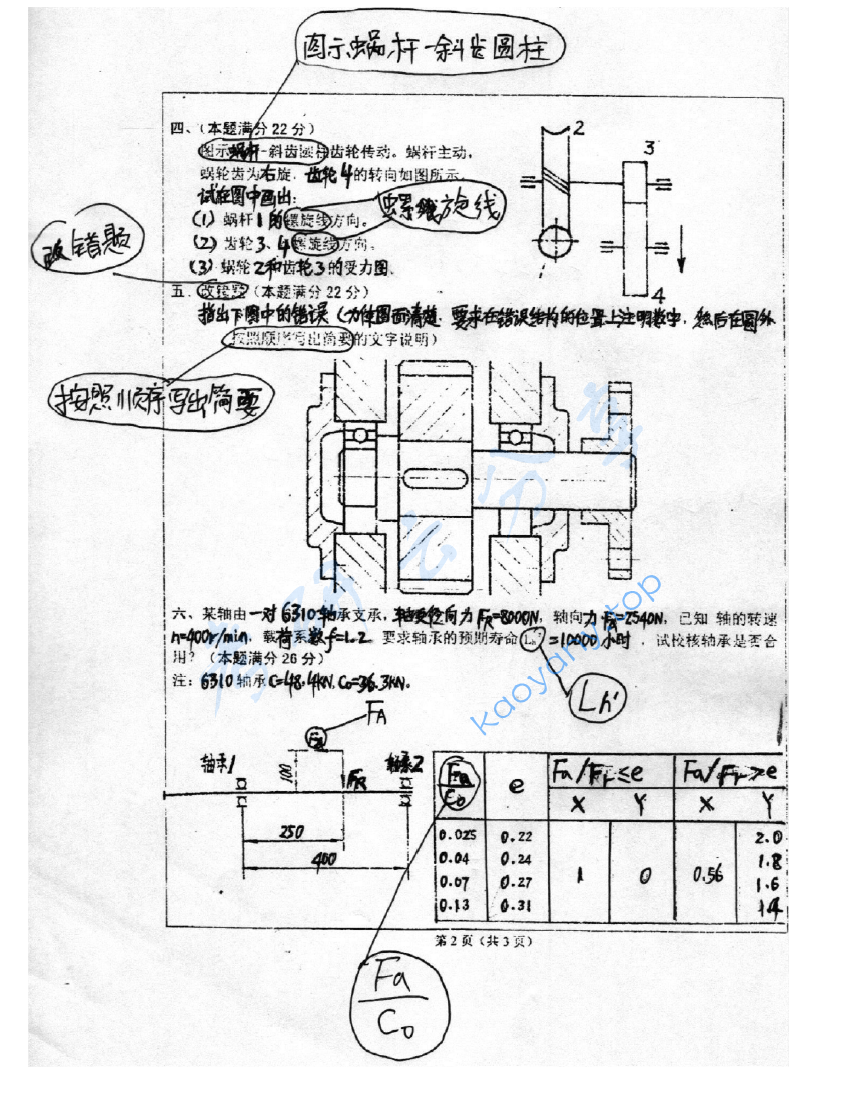 图示蜗杆-斜齿圆柱
四、(本题满分22分)
图示蜗杆-斜齿圆柱齿轮传动。蜗杆主动,
蜗轮齿为右旋.齿轮4的转向如图所示.
试在图中画出:
(1) 蜗杆1的螺旋线方向。
螺旋线
(2) 齿轮3、4螺旋线方向.
(3) 蜗轮2和齿轮3的受力图.
2
3
4
改错题
五.改错题(本题满分22分)
指出下图中的错误(为使图面清楚.要求在错误结构的位置上注明数字.然后在图外
按照顺序写出简要的文字说明)
按照顺序写出简要
六、某轴由一对6310轴承支承,轴受径向力FR=8000N,轴向力FA=2540N,已知 轴的转速
n=400r/min.载荷系数f=1.2.要求轴承的预期寿命Lh'=10000小时.试校核轴承是否合
用?(本题满分26分)
注:6310轴承C=48.4kN,C0=36.3kN.
Lh'
FA
Fa
轴承1
轴承2
100
FR
250
400
Fa/C0 e Fa/Fr≤e Fa/Fr>e
X Y X Y
0.025 0.22 2.0
0.04 0.24 1.8
1 0 0.56
0.07 0.27 1.6
0.13 0.31 1.4
第2页(共3页)
Fa
C0
kaoyany.top